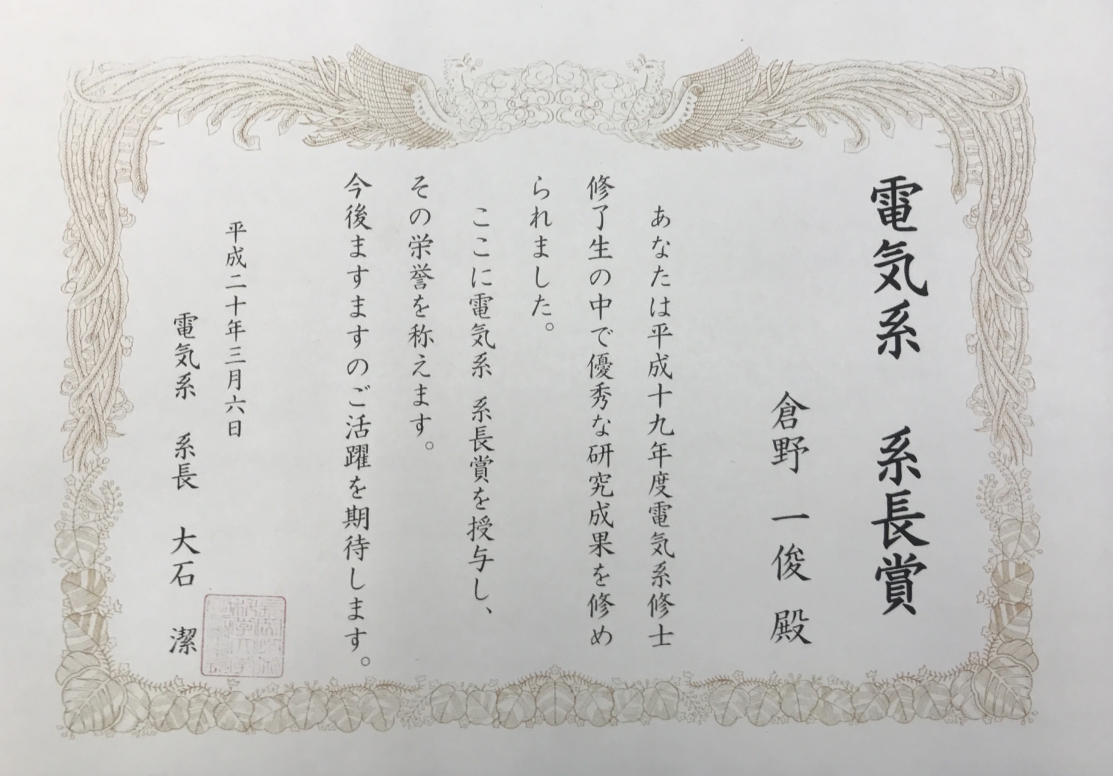 電気系 系長賞
倉野 一俊 殿
あなたは平成十九年度電気系修士
修了生の中で優秀な研究成果を修め
られました。
ここに電気系 系長賞を授与し、
その栄誉を称えます。
今後ますますのご活躍を期待します。
平成二十年三月六日
電気系 系長 大石 潔